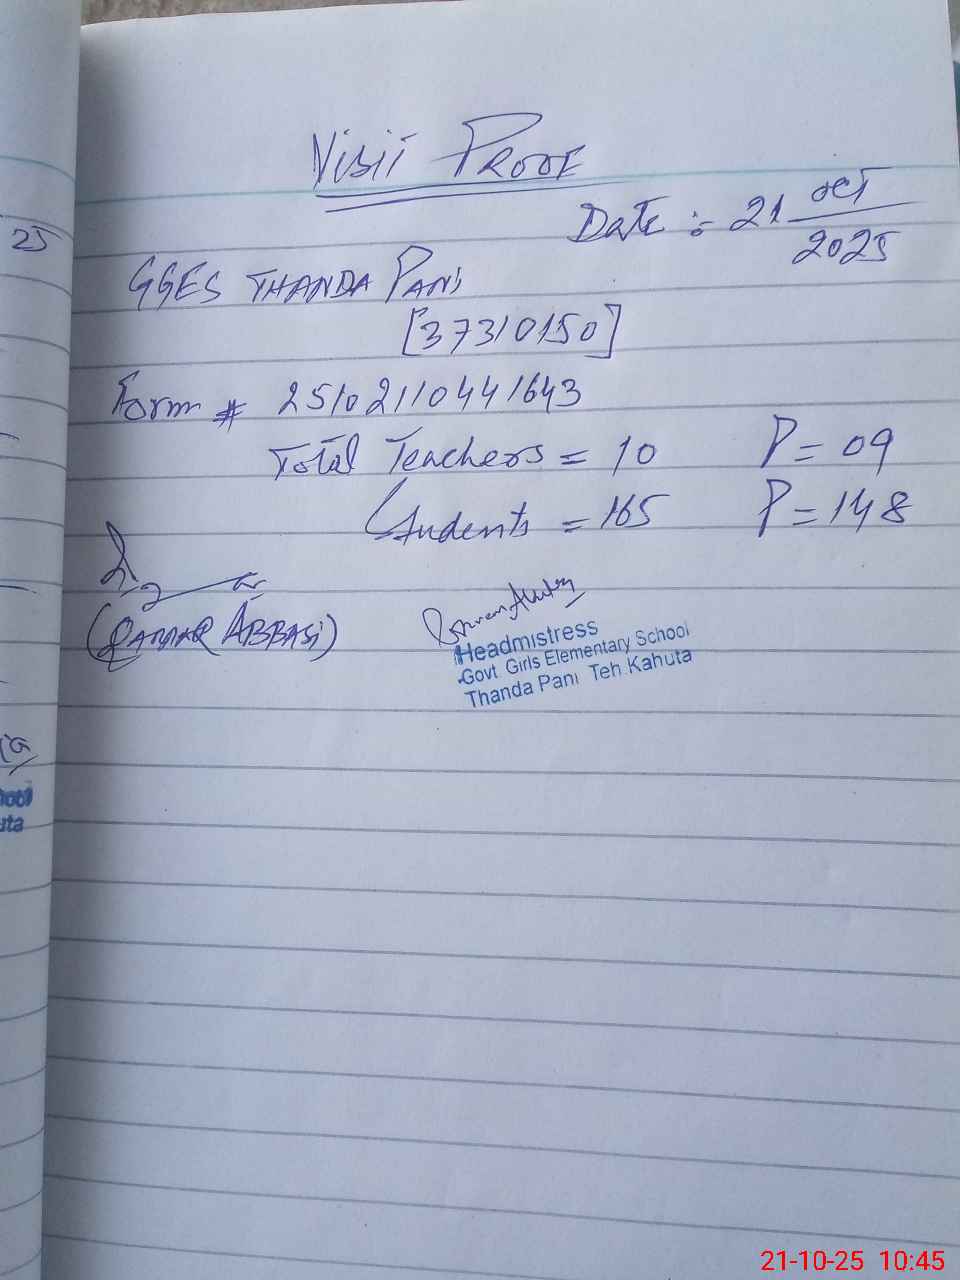 Visit Proof
Date :- 21 oct
2025
GGES THANDA PANi
[37310150]
Form # 25102110441643
Total Teachers = 10 P = 09
Students = 165 P = 148
(QAMAR ABBASi)
Headmistress
Govt. Girls Elementary School
Thanda Pani Teh. Kahuta
25
uta
21-10-25 10:45